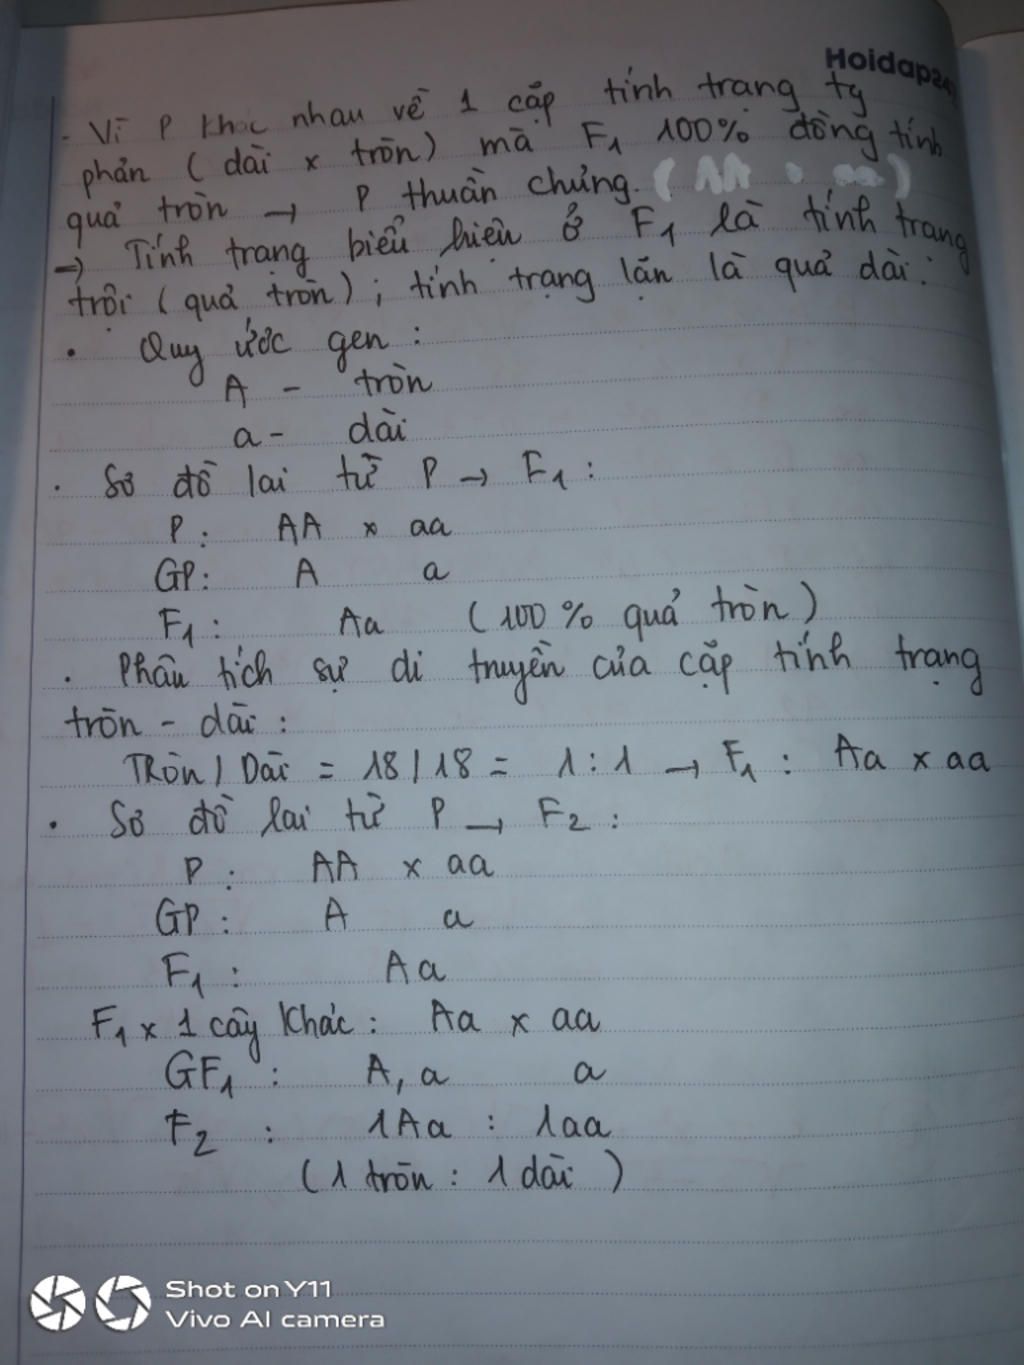 Hoidap247
- Vì P khác nhau về 1 cặp tính trạng tg
phản (dài x tròn) mà F1 100% đồng tính
quả tròn → P thuần chủng. (AA x aa)
→ Tính trạng biểu hiện ở F1 là tính trạng
trội (quả tròn); tính trạng lặn là quả dài.
• Quy ước gen :
A - tròn
a - dài
• Sơ đồ lai từ P → F1 :
P : AA x aa
GP : A a
F1 : Aa (100% quả tròn)
• Phân tích sự di truyền của cặp tính trạng
tròn - dài :
TRòn / Dài = 18 / 18 = 1 : 1 → F1 : Aa x aa
• Sơ đồ lai từ P → F2 :
P : AA x aa
GP : A a
F1 : Aa
F1 x 1 cây khác : Aa x aa
GF1 : A, a a
F2 : 1Aa : 1aa
(1 tròn : 1 dài)
Shot on Y11
Vivo AI camera